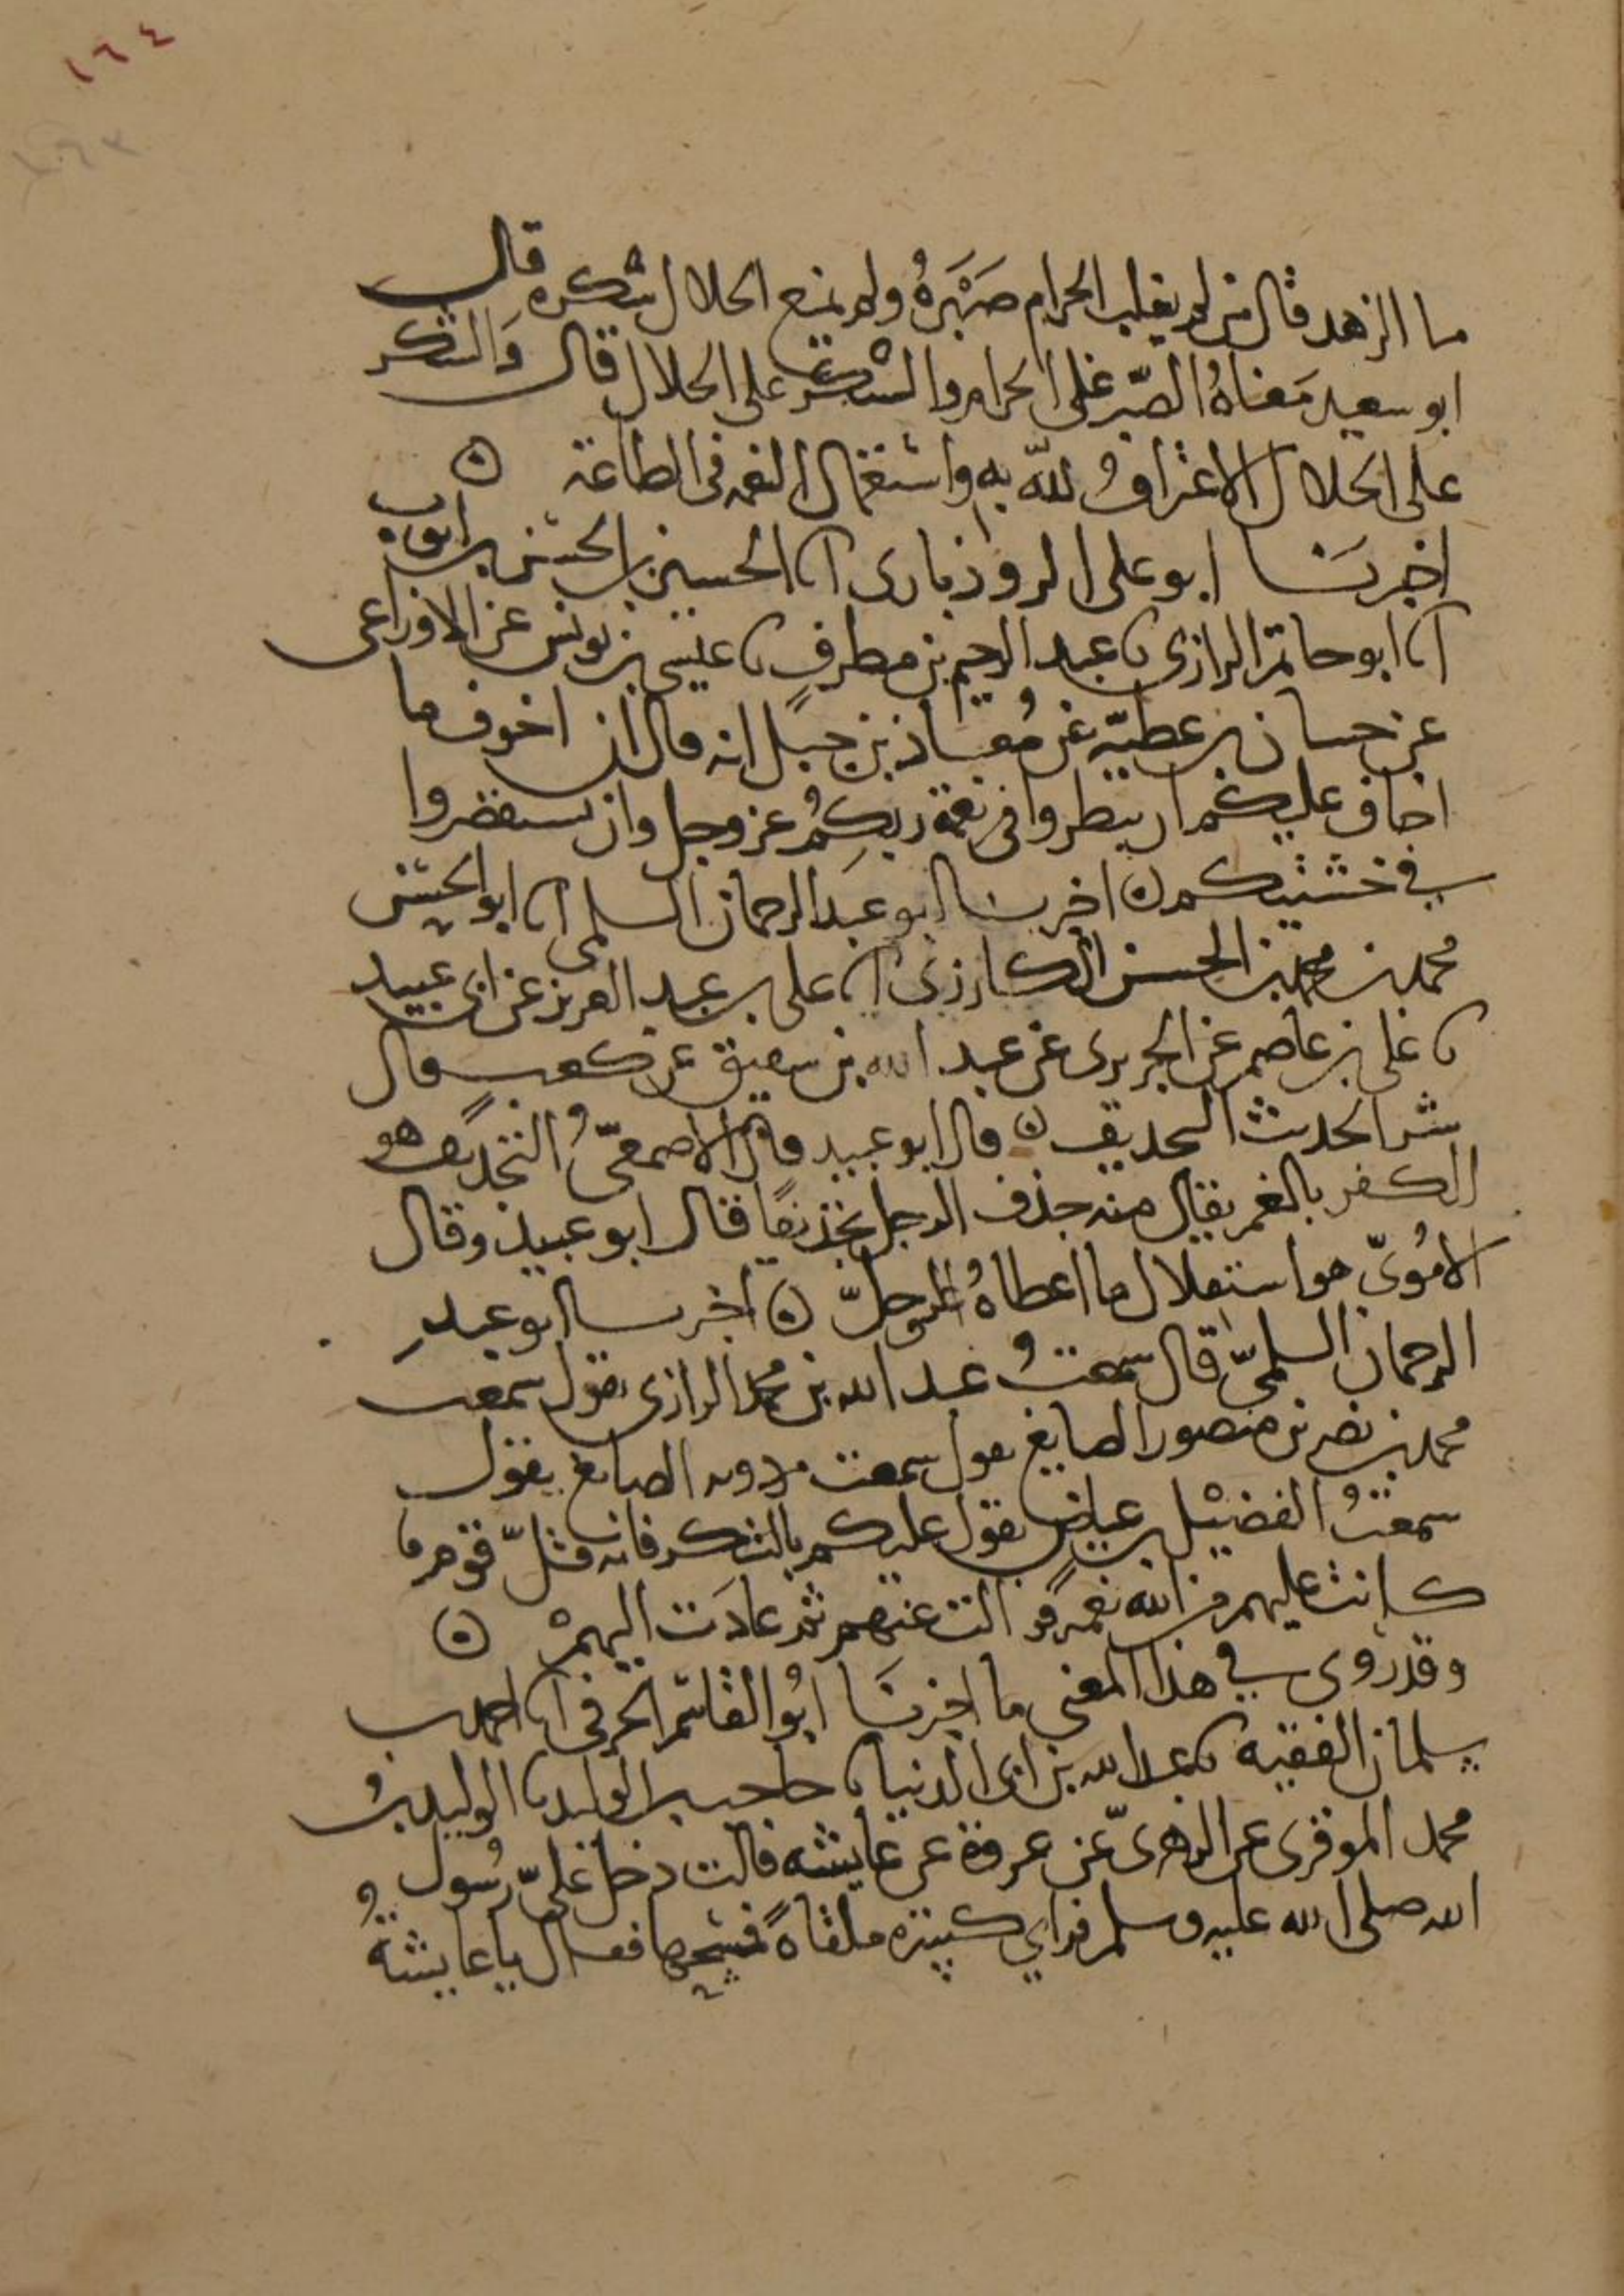 ١٦٤
ما الزهد قال من لم يغلب الحرام صَبْرَهُ ولم يمنع الحلال شكره قال
ابو سعيد مَعْناهُ الصّبر على الحرام والشكر على الحلال قال وَالشكر
على الحلال الاعتراف لله به واستعمال النعمه فى الطاعة ه
اخبرنا ابو على الروذبارى انا الحسين بن الحسن بن ايوب
انا ابو حاتم الرازى نا عبد الرحيم بن مطرف نا عيسى بن يونس عن الاوزاعى
عن حسان بن عطيّه عن مُعاذ بن جبل انه قال ان اخوف ما
اخاف عليكم ان تبطروا فى نعمة ربكُم عز وجل وان تستقصروا
في خشيتكم ه اخبرنا ابو عبد الرحمان السلمى انا ابو الحسن
محمد بن محمد بن الحسن الكارزى انا على بن عبد العزيز عن ابى عبيد
نا على بن عاصم عن الجريرى عن عبد الله بن شقيق عن كعب قال
شر الحديث التجديف ه قال ابو عبيد قال الاصمعىّ التجديف هو
الكفر بالنعم يقال منه جدف الرجل تجديفًا قال ابو عبيد وقال
الامُوىّ هو استقلال ما اعطاهُ الله عز وجلّ ه اخبرنا ابو عبد
الرحمان السلمىّ قال سمعتُ عبد الله بن محمد الرازى يقول سمعت
محمد بن نصر بن منصور الصايغ يقول سمعت مردويه الصايغ يقول
سمعتُ الفضيْل بن عياض يقول عليكم بالشكر فانه قلّ قوم ما
كانت عليهم من الله نعمه فزالت عنهم ثم عادَت اليهمْ ه
وقد روى في هذا المعنى ما اخبرنا ابُو القاسم الحرفى انا احمد بن
سلمان الفقيه نا عبد الله بن ابى الدنيا نا حاجب بن الوليد نا الوليد بنُ
محمد الموقرى عن الزهرىّ عن عروة عن عايشه قالت دخل علىّ رسُول
الله صلى الله عليه وسلم فراي كسيرة ملقاةً فمسحها فقال يا عايشةُ